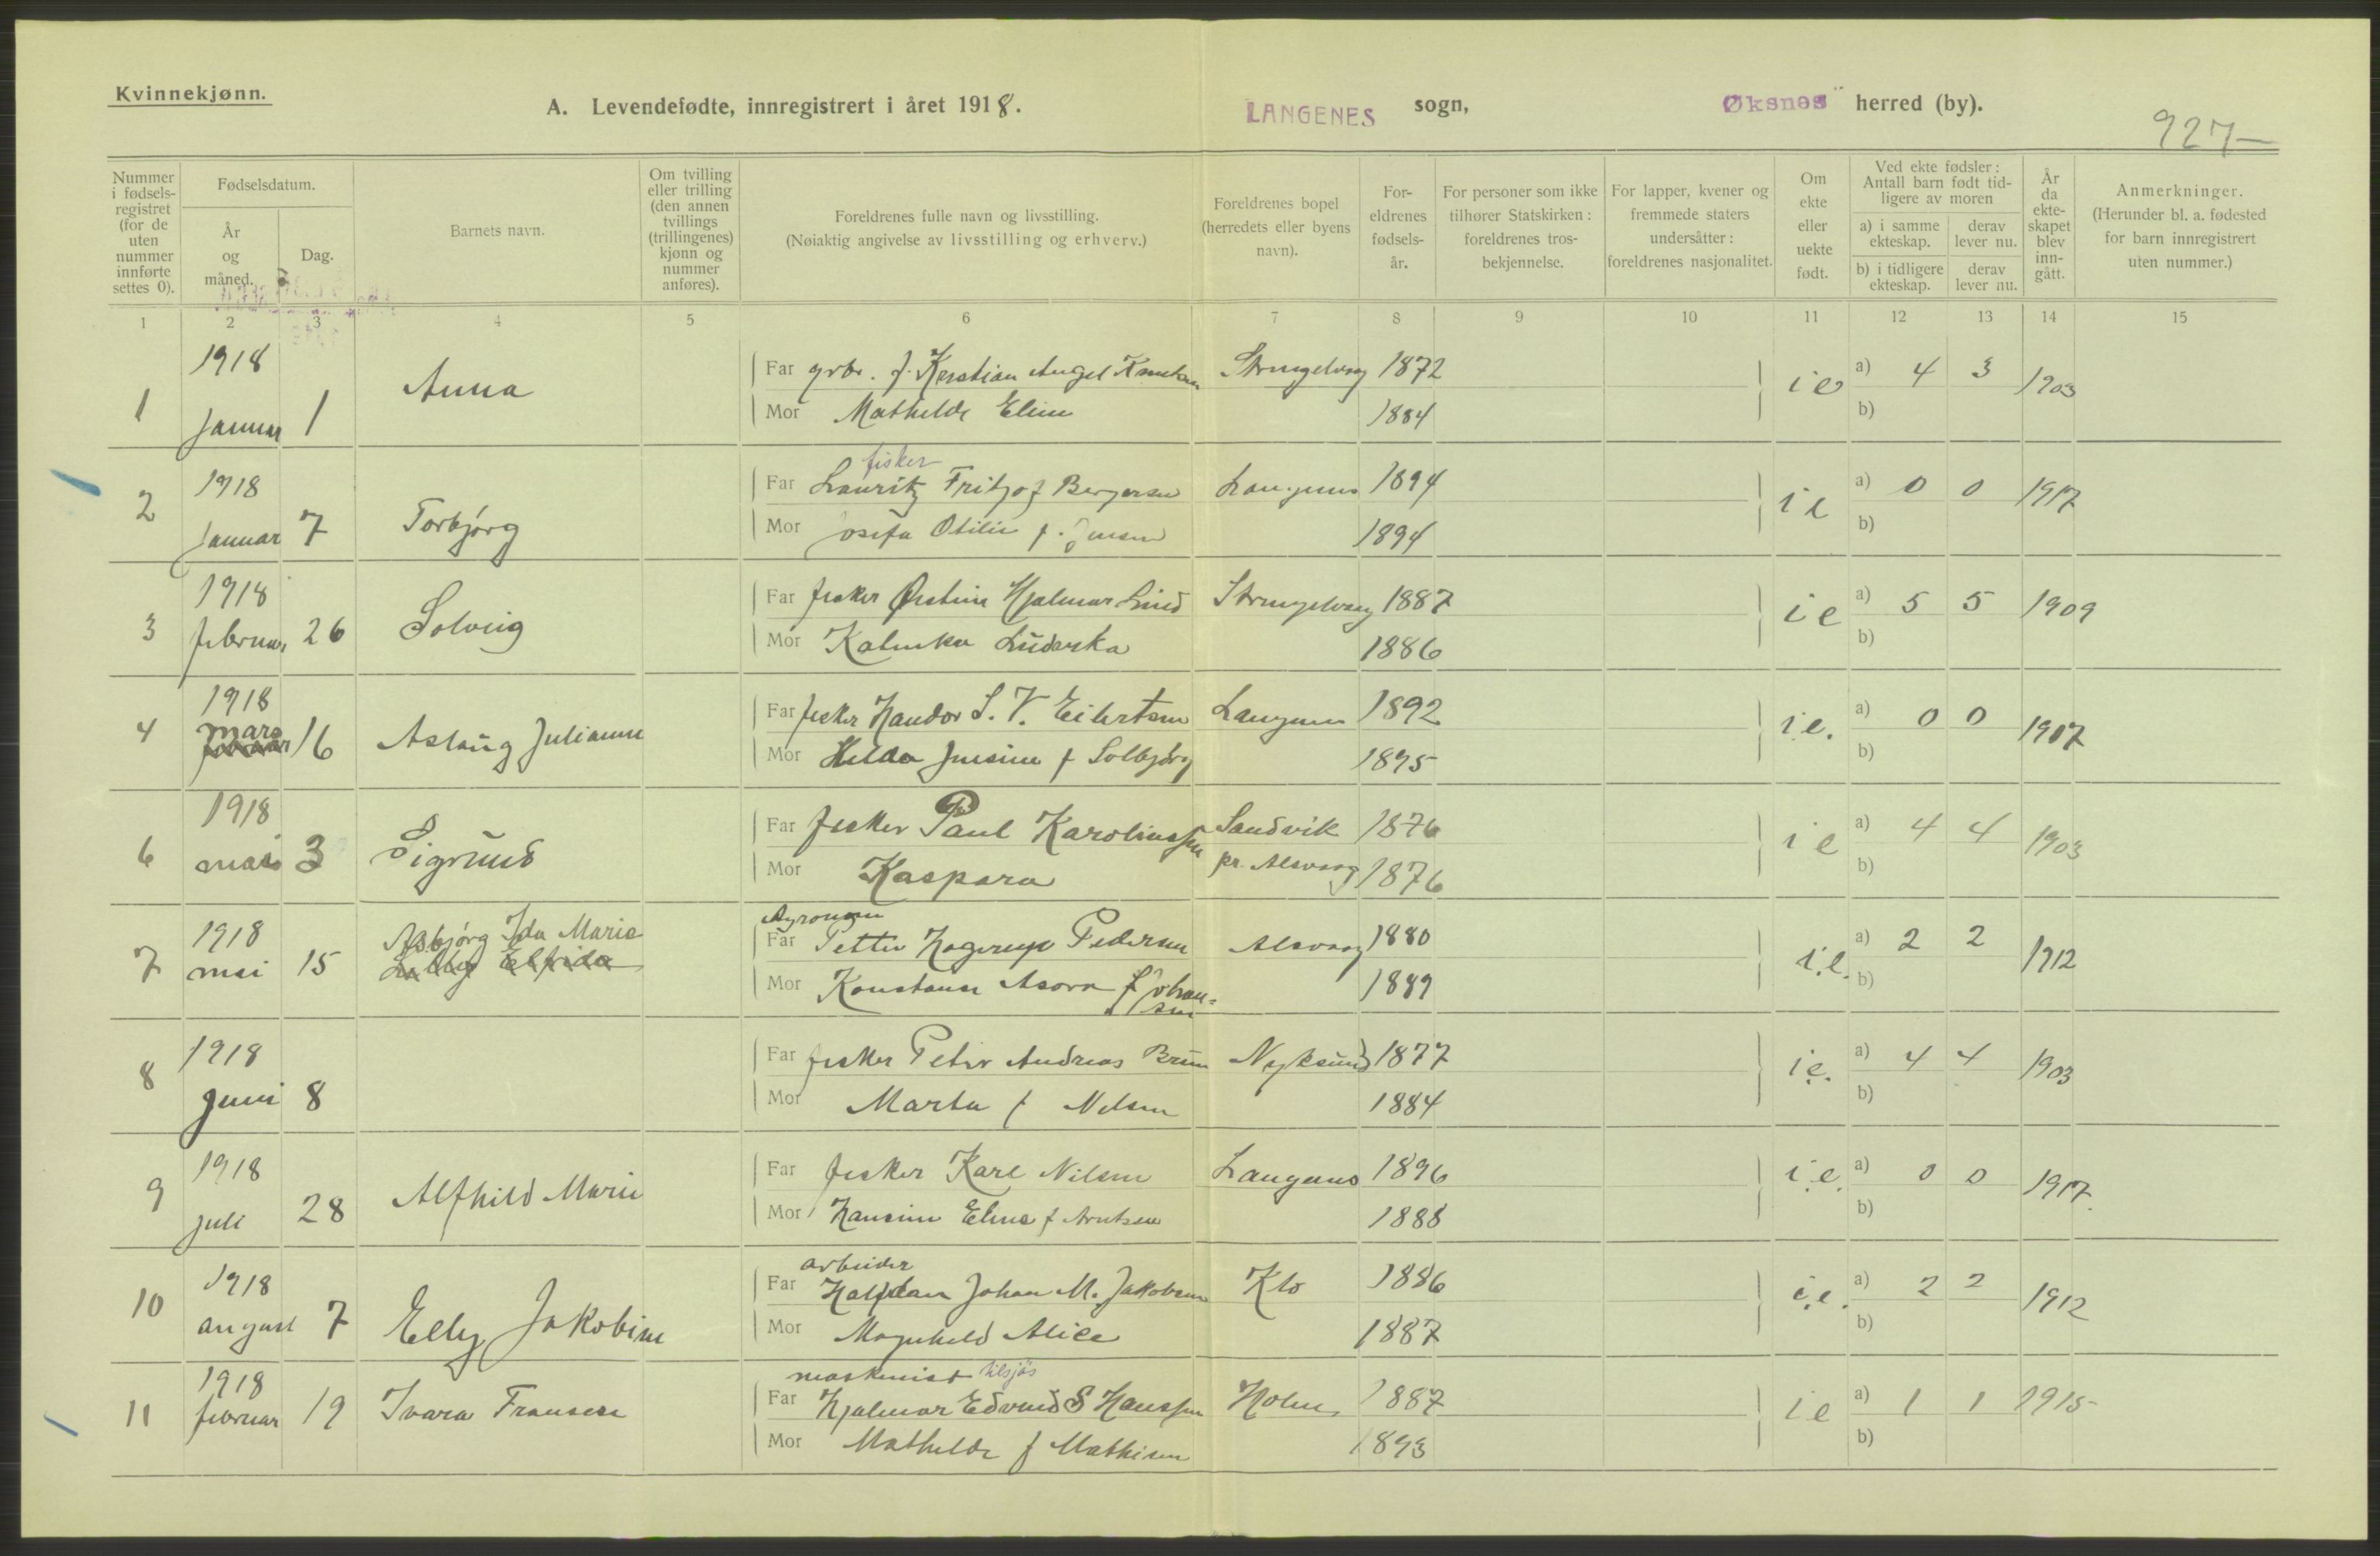 Kvinnekjønn.
A. Levendefødte, innregistrert i året 1918. LANGENES sogn, Øksnes herred (by).
927—
Nummer i fødsels-registret (for de uten nummer innførte settes 0).
Fødselsdatum.
År og måned.
Dag.
Barnets navn.
Om tvilling eller trilling (den annen tvillings (trillingenes) kjønn og nummer anføres).
Foreldrenes fulle navn og livsstilling.
(Nøiaktig angivelse av livsstilling og erhverv.)
Foreldrenes bopel (herredets eller byens navn).
For-eldrenes fødsels-år.
For personer som ikke tilhører Statskirken: foreldrenes tros-bekjennelse.
For lapper, kvener og fremmede staters undersåtter: foreldrenes nasjonalitet.
Om ekte eller uekte født.
Ved ekte fødsler: Antall barn født tid-ligere av moren
a) i samme ekteskap.
derav lever nu.
b) i tidligere ekteskap.
derav lever nu.
År da ekte-skapet blev inn-gått.
Anmerkninger.
(Herunder bl. a. fødested for barn innregistrert uten nummer.)
1 2 3 4 5 6 7 8 9 10 11 12 13 14 15
1 1918 Januar 1 Anna
Far Angel 1872 ie a) 4 3 1903
Mor Mathilde Eline 1884 b)
2 1918 Januar 7 Torbjørg
fisker
Far Lauritz Fritjof Bergersen Langenes 1894 ie a) 0 0 1917
Mor Josefa Otilie f. Jensen 1894 b)
3 1918 februar 26 Solveig
Far fisker Hjalmar Lind 1887 ie a) 5 5 1909
Mor Ludarska 1886 b)
4 1918 mars februar 16 Aslaug Julianne
Far fisker Handor S. V. Eilertsen Langenes 1892 i.e. a) 0 0 1917
Mor Helda Jensine f Solbjørg 1895 b)
6 1918 mai 3 Sigrund
Far fisker Paul Karolinssen Sandvik 1876 ie a) 4 4 1903
Mor Kaspara pr. Alsvaag 1876 b)
7 1918 mai 15 Asbjørg Ida Marie
Elfrida
Agronom
Far Petter Hagerup Pedersen Alsvaag 1880 i.e. a) 2 2 1912
Mor Konstanse Asora f Johan=
sen 1889 b)
8 1918 Juni 8
Far fisker Peter Andreas Brun Nyksund 1877 i.e. a) 4 4 1903
Mor Marta f Nilsen 1884 b)
9 1918 juli 28 Alfhild Marie
Far fisker Karl Nilsen Langenes 1896 i.e. a) 0 0 1917
Mor Hansine Eline f Arntsen 1888 b)
10 1918 august 7 Elly Jakobine
arbeider
Far Halfdan Johan M. Jakobsen Klo 1886 i.e. a) 2 2 1912
Mor Magnhild Alice 1887 b)
11 1918 februar 19 Ivara Fransese
maskinist tilsjøs
Far Hjalmar Edvind S Hanssen Holm 1887 ie a) 1 1 1915
Mor Mathilde f Mathisen 1893 b)